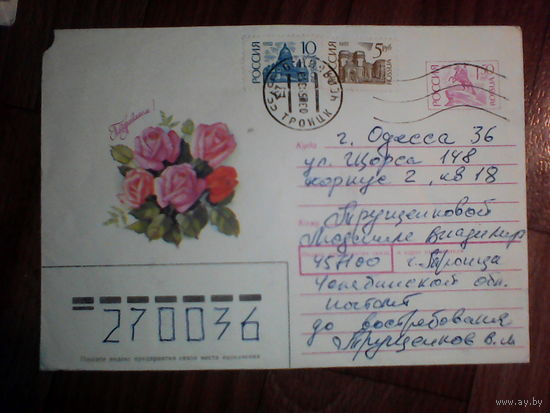 РОССИЯ 10
РОССИЯ
1992
5 руб
ROSSIJA
РОССИЯ
ТРОИЦК
Поздравляю!
Куда
г. Одесса 36
ул. Щорса 148
корпус 2, кв 18
Кому
Трущенковой
Людмиле Владимир
457100 г. Троицк
Челябинской обл.
почтамт
до востребования
Трущенков В.М
270036
Пишите индекс предприятия связи места назначения
www.ay.by